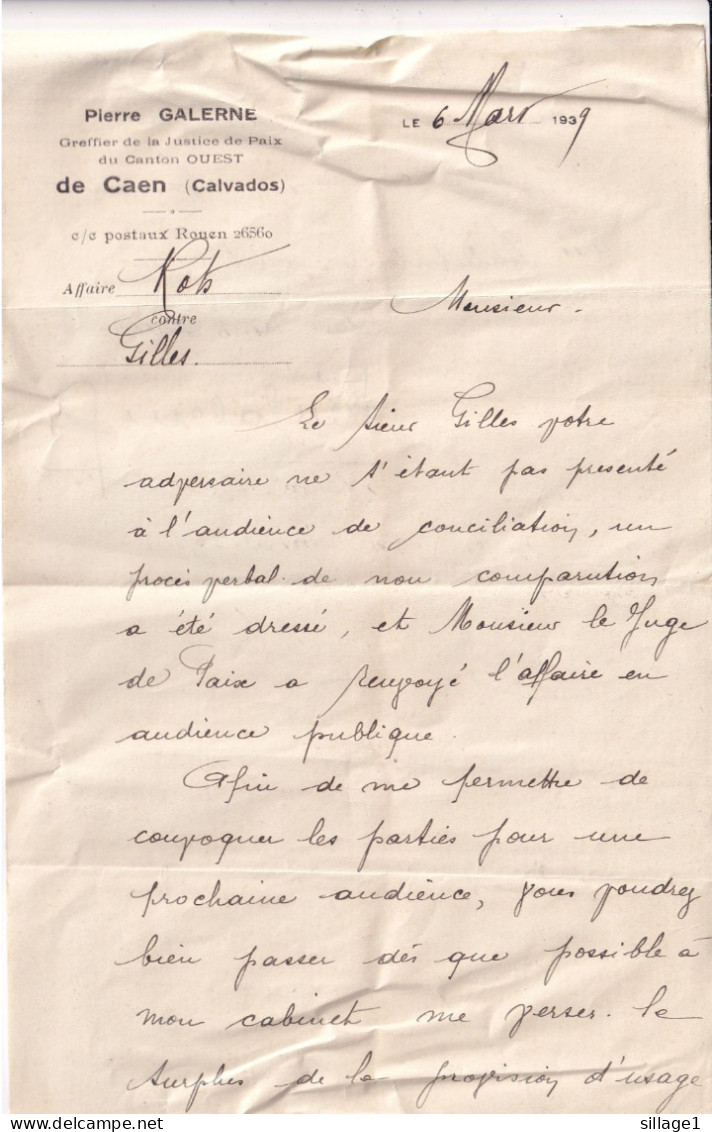 Pierre GALERNE
Greffier de la Justice de Paix
du Canton OUEST
de Caen (Calvados)
c/c postaux Rouen 26560
LE 6 Mars 1939
Affaire
contre
Gilles.
Monsieur.
Le sieur Gilles votre
adversaire ne s'étant pas presenté
à l'audience de conciliation, un
procès verbal de non comparution
a été dressé, et Monsieur le Juge
de Paix a renvoyé l'affaire en
audience publique.
Afin de me permettre de
convoquer les parties pour une
prochaine audience, vous voudrez
bien passer dès que possible à
mon cabinet me verser le
surplus de la provision d'usage
sillage1